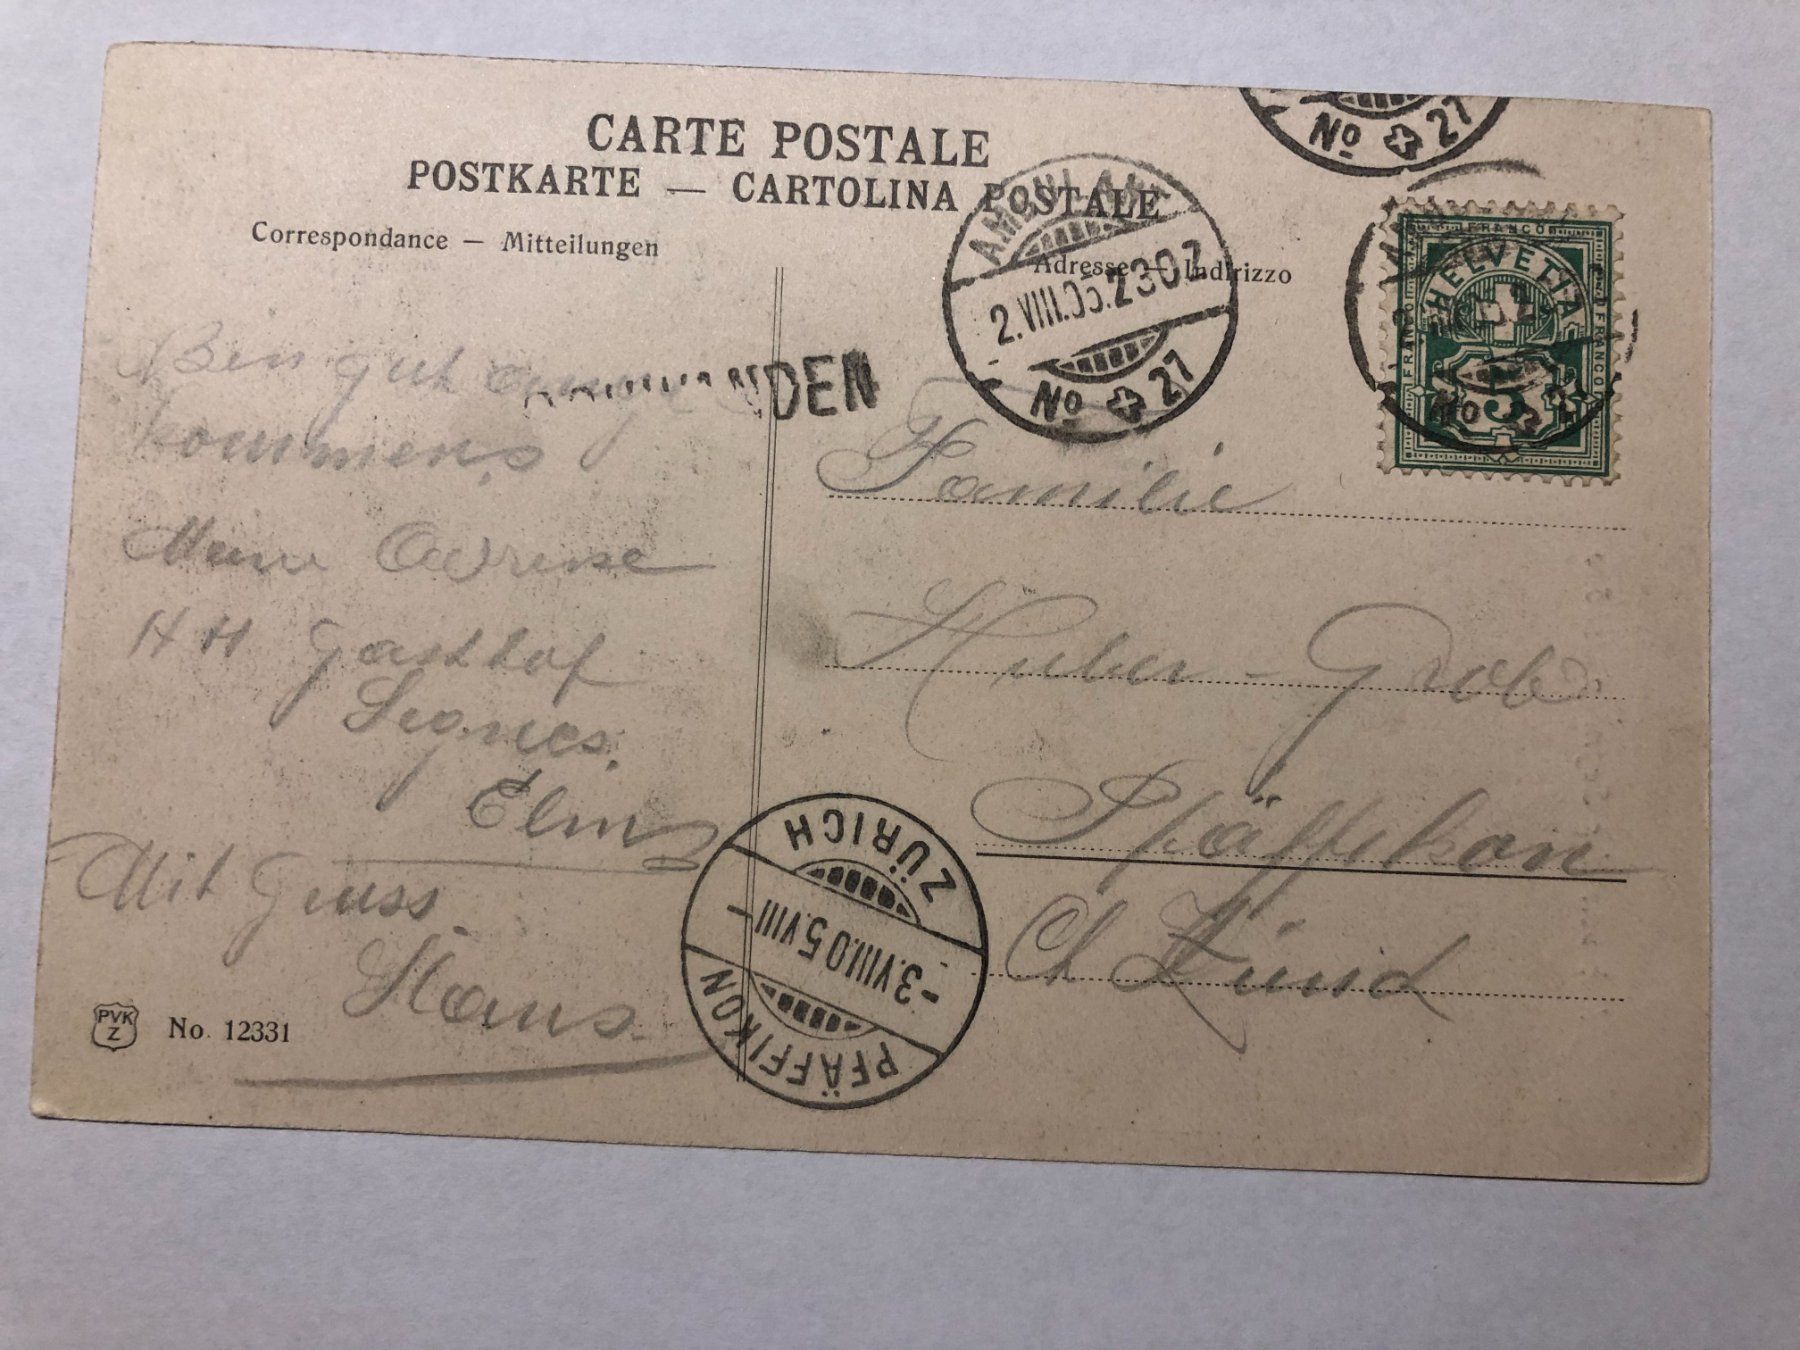 CARTE POSTALE
POSTKARTE — CARTOLINA POSTALE
Correspondance — Mitteilungen
Adresse — Indirizzo
No 27
AMBULANT
2.VIII.05.2302
No 27
FRANCO
FRANCO
FRANCO
HELVETIA
5
No
ANDEN
Bin gut ange
kommen.
Meine Adresse
HH Gasthof
Segnes.
Elm
Mit Gruss.
Hans.
Familie
Huber-Grob
Pfäffikon
Ct Zürich
ZÜRICH
-3.VIII.05 VIII-
PFÄFFIKON
PVK
Z
No. 12331